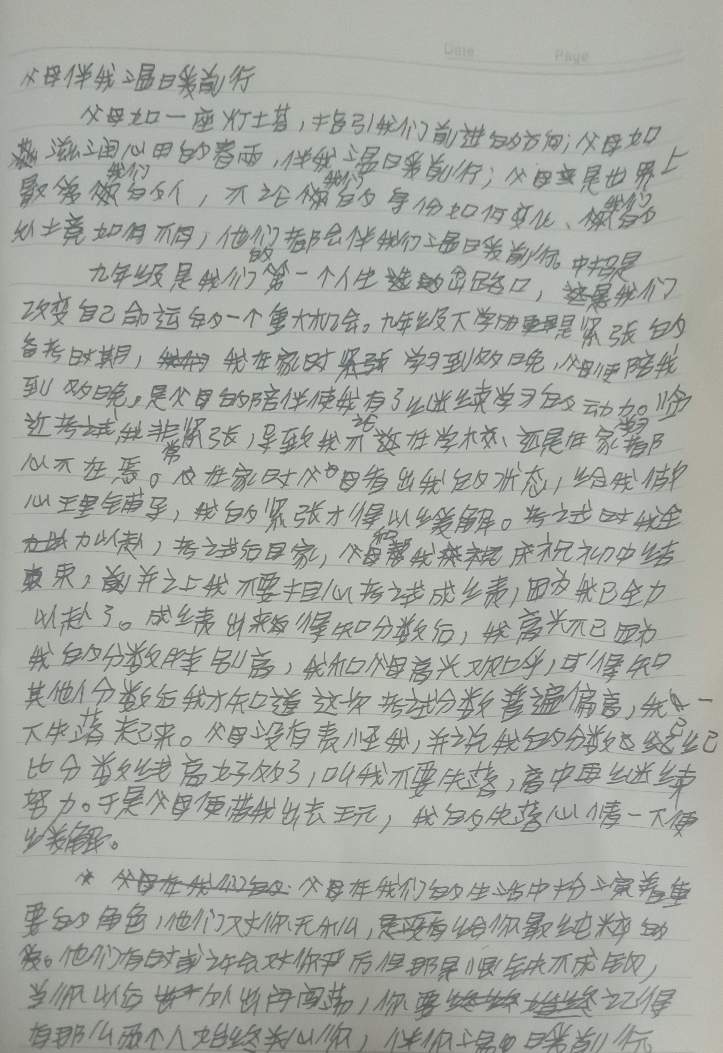 Date Page
父母伴我温暖前行
父母如一座灯塔，指引我们前进的方向；父母如
滋润心田的春雨，伴我温暖前行；父母更是世界上
最爱我们的人，不论我们的身份如何变化、我们的
处境如何不同，他们都会伴我们温暖前行。
九年级是我们的第一个人生的岔路口，中招是我们
改变自己命运的一个重大机会。九年级下学期是紧张的
备考时期，我在家时学习到多晚，父母便陪我
到多晚。是父母的陪伴使我有了继续学习的动力。临
近考试我非常紧张，导致我不论在学校、还是在家学习都
心不在焉。在家时父母看出我的状态，给我做
心理辅导，我的紧张才得以缓解。考试时我全
力以赴，考试后回家，父母和我庆祝初中结
束，并让我不要担心考试成绩，因为我已全力
以赴了。成绩出来得知分数后，我高兴不已因为
我的分数非常高，我和父母高兴欢呼，可得知
其他人分数后我才知道这次考试分数普遍偏高，我一
下失落起来。父母没有责怪我，并说我的分数已经
比分数线高好多了，叫我不要失落，高中再继续
努力。于是父母便带我出去玩，我的失落心情一下便
缓解。
父母在我们的生活中扮演着重
要的角色，他们对你无私，给你最纯粹的
爱。他们有时或许会对你严厉但那是恨铁不成钢，
当你以后外出闯荡，你要记得
有那么两个人始终关心你，伴你温暖前行。